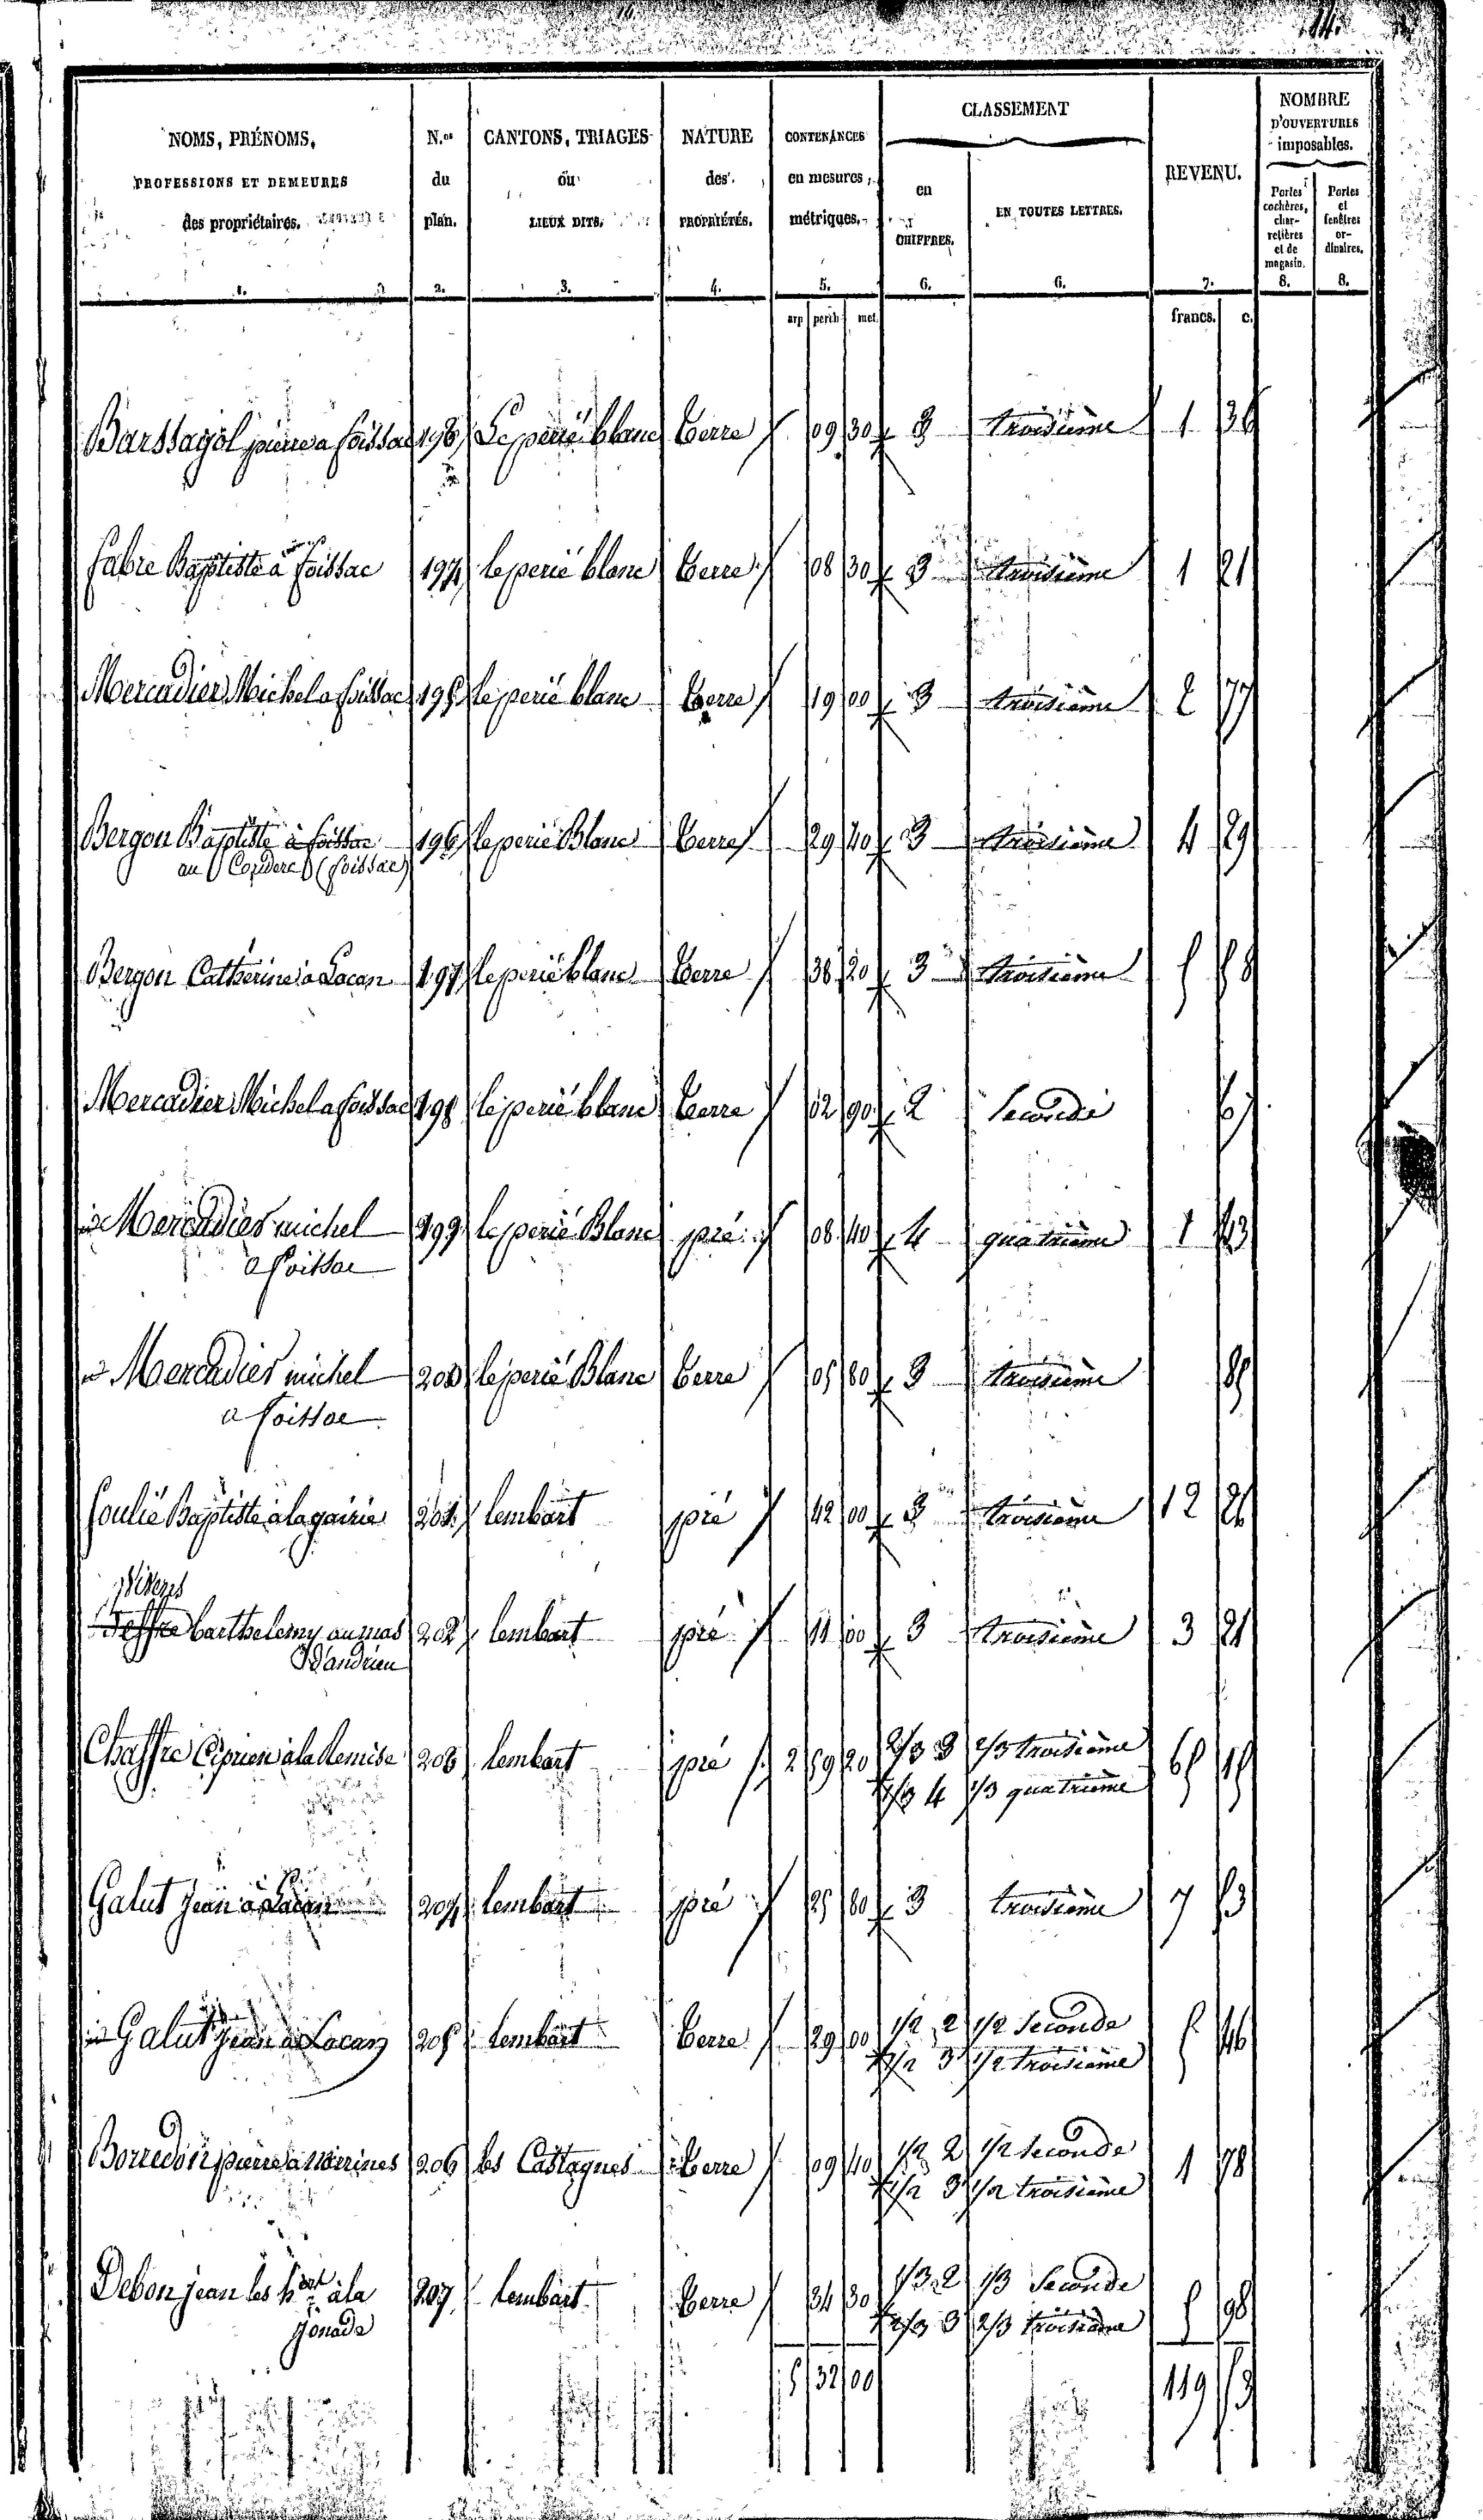 14.
NOMS, PRÉNOMS, PROFESSIONS ET DEMEURES des propriétaires. 1.
N.os du plan. 2.
CANTONS, TRIAGES ou LIEUX DITS. 3.
NATURE des PROPRIÉTÉS. 4.
CONTENANCES en mesures métriques. 5.
CLASSEMENT
en CHIFFRES. 6.
EN TOUTES LETTRES. 6.
REVENU. 7.
NOMBRE D'OUVERTURES imposables.
Portes cochères, charretières et de magasin. 8.
Portes et fenêtres ordinaires. 8.
arp perch met. francs. c.
Barssagol a foissac Le perié blanc terre 09 30 3 troisième 1 36
Fabre Baptiste a foissac 194 le perié blanc terre 08 30 3 troisième 1 21
Mercadier Michel a foissac 195 le perié blanc terre 19 00 3 troisième 2 77
Bergon Baptiste à foissac 196 le perié Blanc terre 29 40 3 troisième 4 29
au Couderc (foissac)
Bergon Catherine a Lacan 197 le perié blanc terre 38 20 3 troisième 5 58
Mercadier Michel a foissac 198 le perié blanc terre 02 90 2 Seconde 67
Mercadier michel 199 le perié Blanc pré 08 40 4 quatrième 1 43
a foissac
Mercadier michel 200 le perié Blanc terre 05 80 3 troisième 85
a foissac
Soulié Baptiste 201 lembart pré 42 00 3 troisième 12 26
barthelemy au mas 202 lembart pré 11 00 3 troisième 3 21
Dandrieu
Chaffre Ciprien à la Remise 203 lembart pré 2 59 20 2/3 3 2/3 troisième 65 15
1/3 4 1/3 quatrième
Galut jean a Lacan 204 lembart pré 25 80 3 troisième 7 53
Galut jean a Lacan 205 lembart terre 29 00 1/2 2 1/2 Seconde 5 46
1/2 3 1/2 troisième
pierre a 206 les Castagnes terre 09 40 1/2 2 1/2 Seconde 1 78
1/2 3 1/2 troisième
Debon jean les à la 207 lembart terre 34 30 1/3 2 1/3 Seconde 5 98
jonade 2/3 3 2/3 troisième
5 32 00 119 53